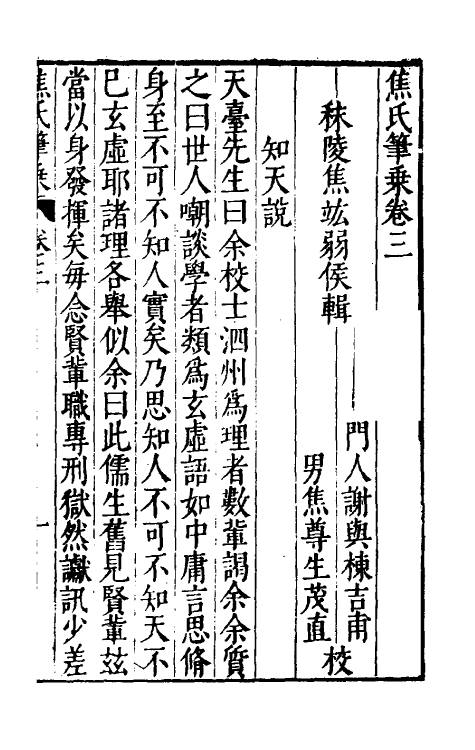 焦氏筆乗卷三
秣陵焦竑弱侯輯
門人謝與棟吉甫
男焦尊生茂直
校
知天說
天臺先生曰余校士泗州爲理者數輩謁余余質
之曰世人嘲談學者類爲玄虛語如中庸言思脩
身至不可不知人實矣乃思知人不可不知天不
已玄虛耶諸理各舉似余曰此儒生舊見賢輩玆
當以身發揮矣每念賢輩職專刑獄然讞訊少差
焦氏筆乗
卷三
一